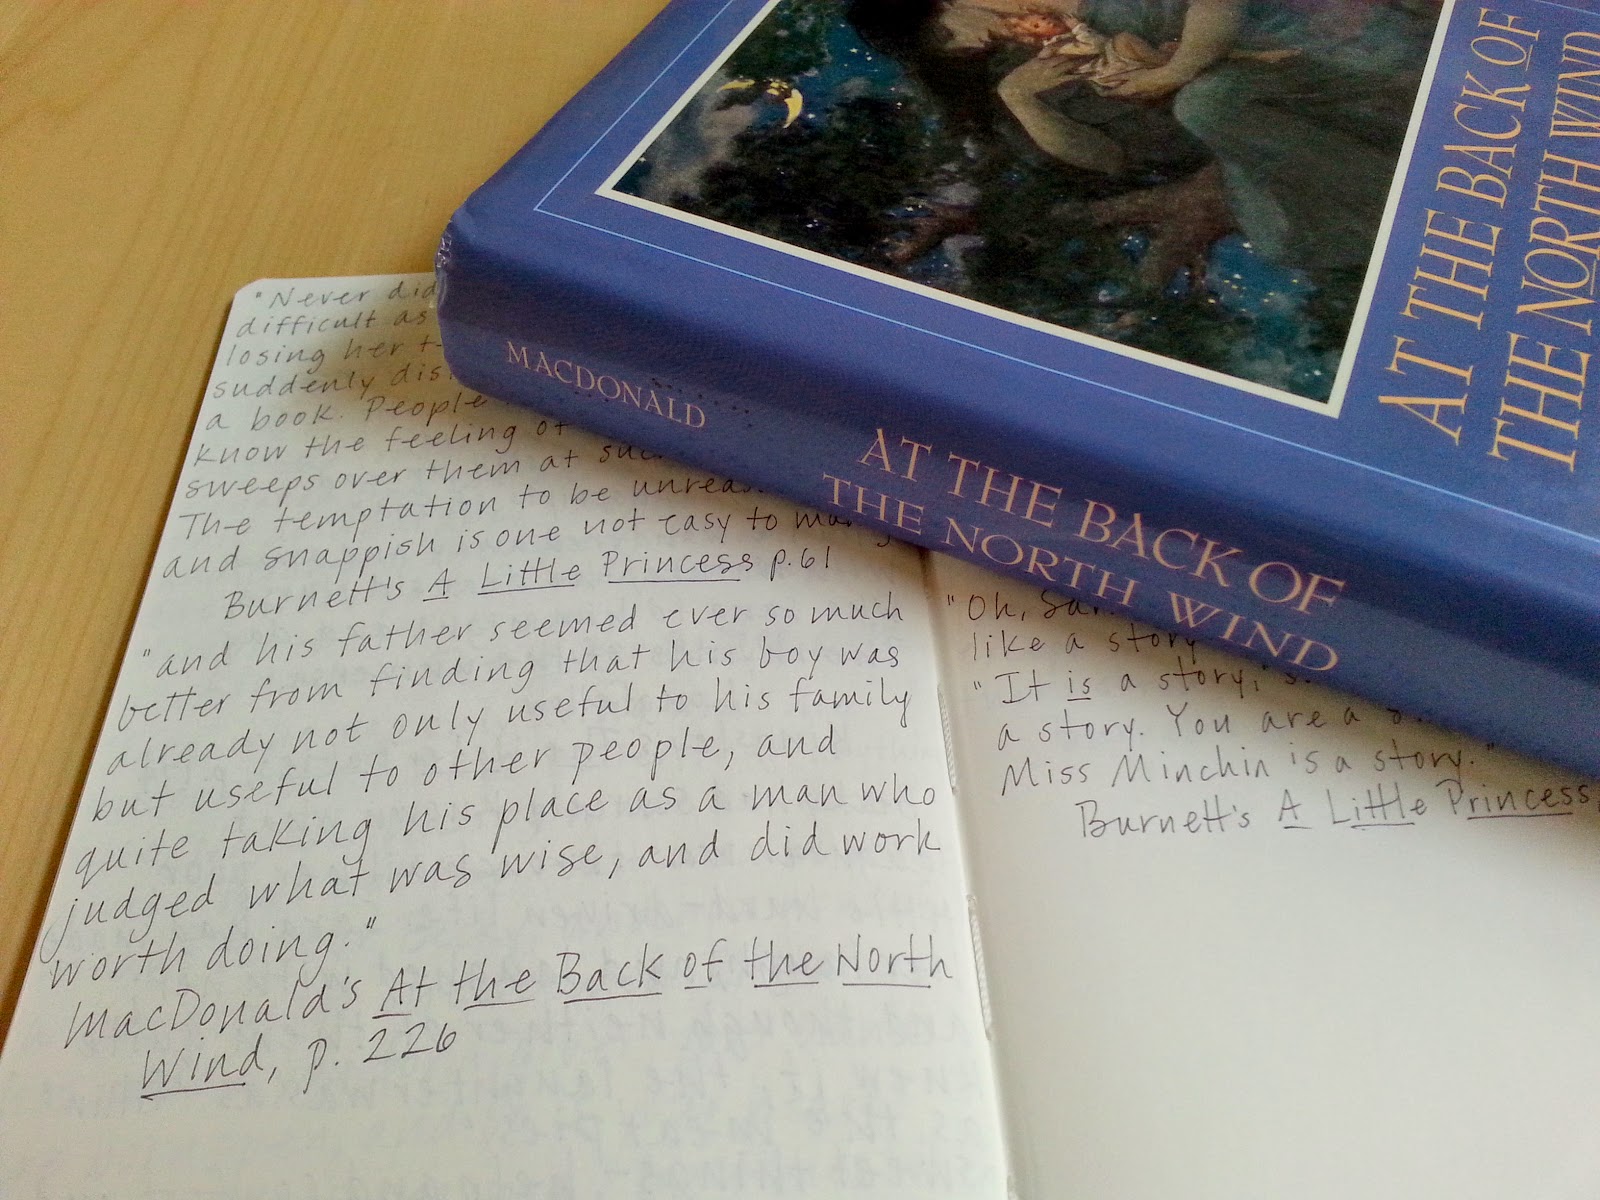 "Never did
difficult as
losing her
suddenly
a book. People
know the feeling of
sweeps over them at
The temptation to be
and snappish is one not easy to
Burnett's A Little Princess p.61
"and his father seemed ever so much
better from finding that his boy was
already not only useful to his family
but useful to other people, and
quite taking his place as a man who
judged what was wise, and did work
worth doing."
MacDonald's At the Back of the North
Wind, p. 226
"Oh,
like a story
"It is a story,"
a story. You are a
Miss Minchin is a story."
Burnett's A Little Princess,
MACDONALD
AT THE BACK OF
THE NORTH WIND
AT THE BACK OF
THE NORTH WIND